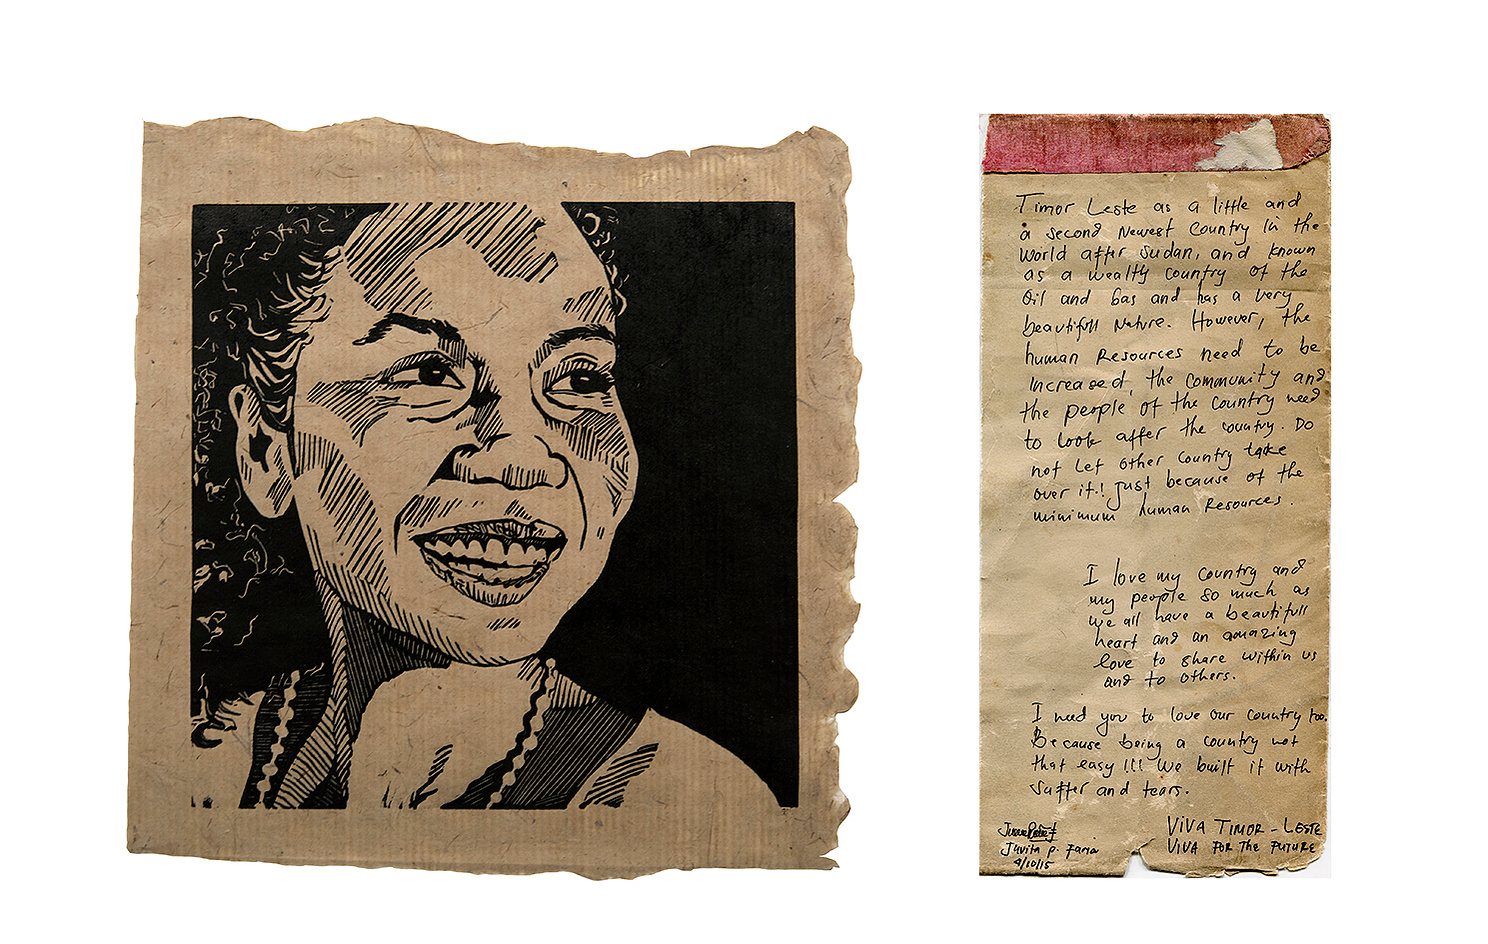 Timor Leste as a little and
a second Newest Country in the
World after Sudan, and known
as a wealty country of the
Oil and Gas and has a very
beautifull Nature. However, the
human Resources need to be
increased, the community and
the people of the country need
to look after the country. Do
not let other country take
over it!! Just because of the
minimum human Resources.
I love my country and
my people so much as
we all have a beautifull
heart and an amazing
love to share within us
and to others.
I need you to love our country too.
Because being a country not
that easy!!! We built it with
suffer and tears.
Juvita P. Faria
4/10/15
VIVA TIMOR - LESTE
VIVA FOR THE FUTURE